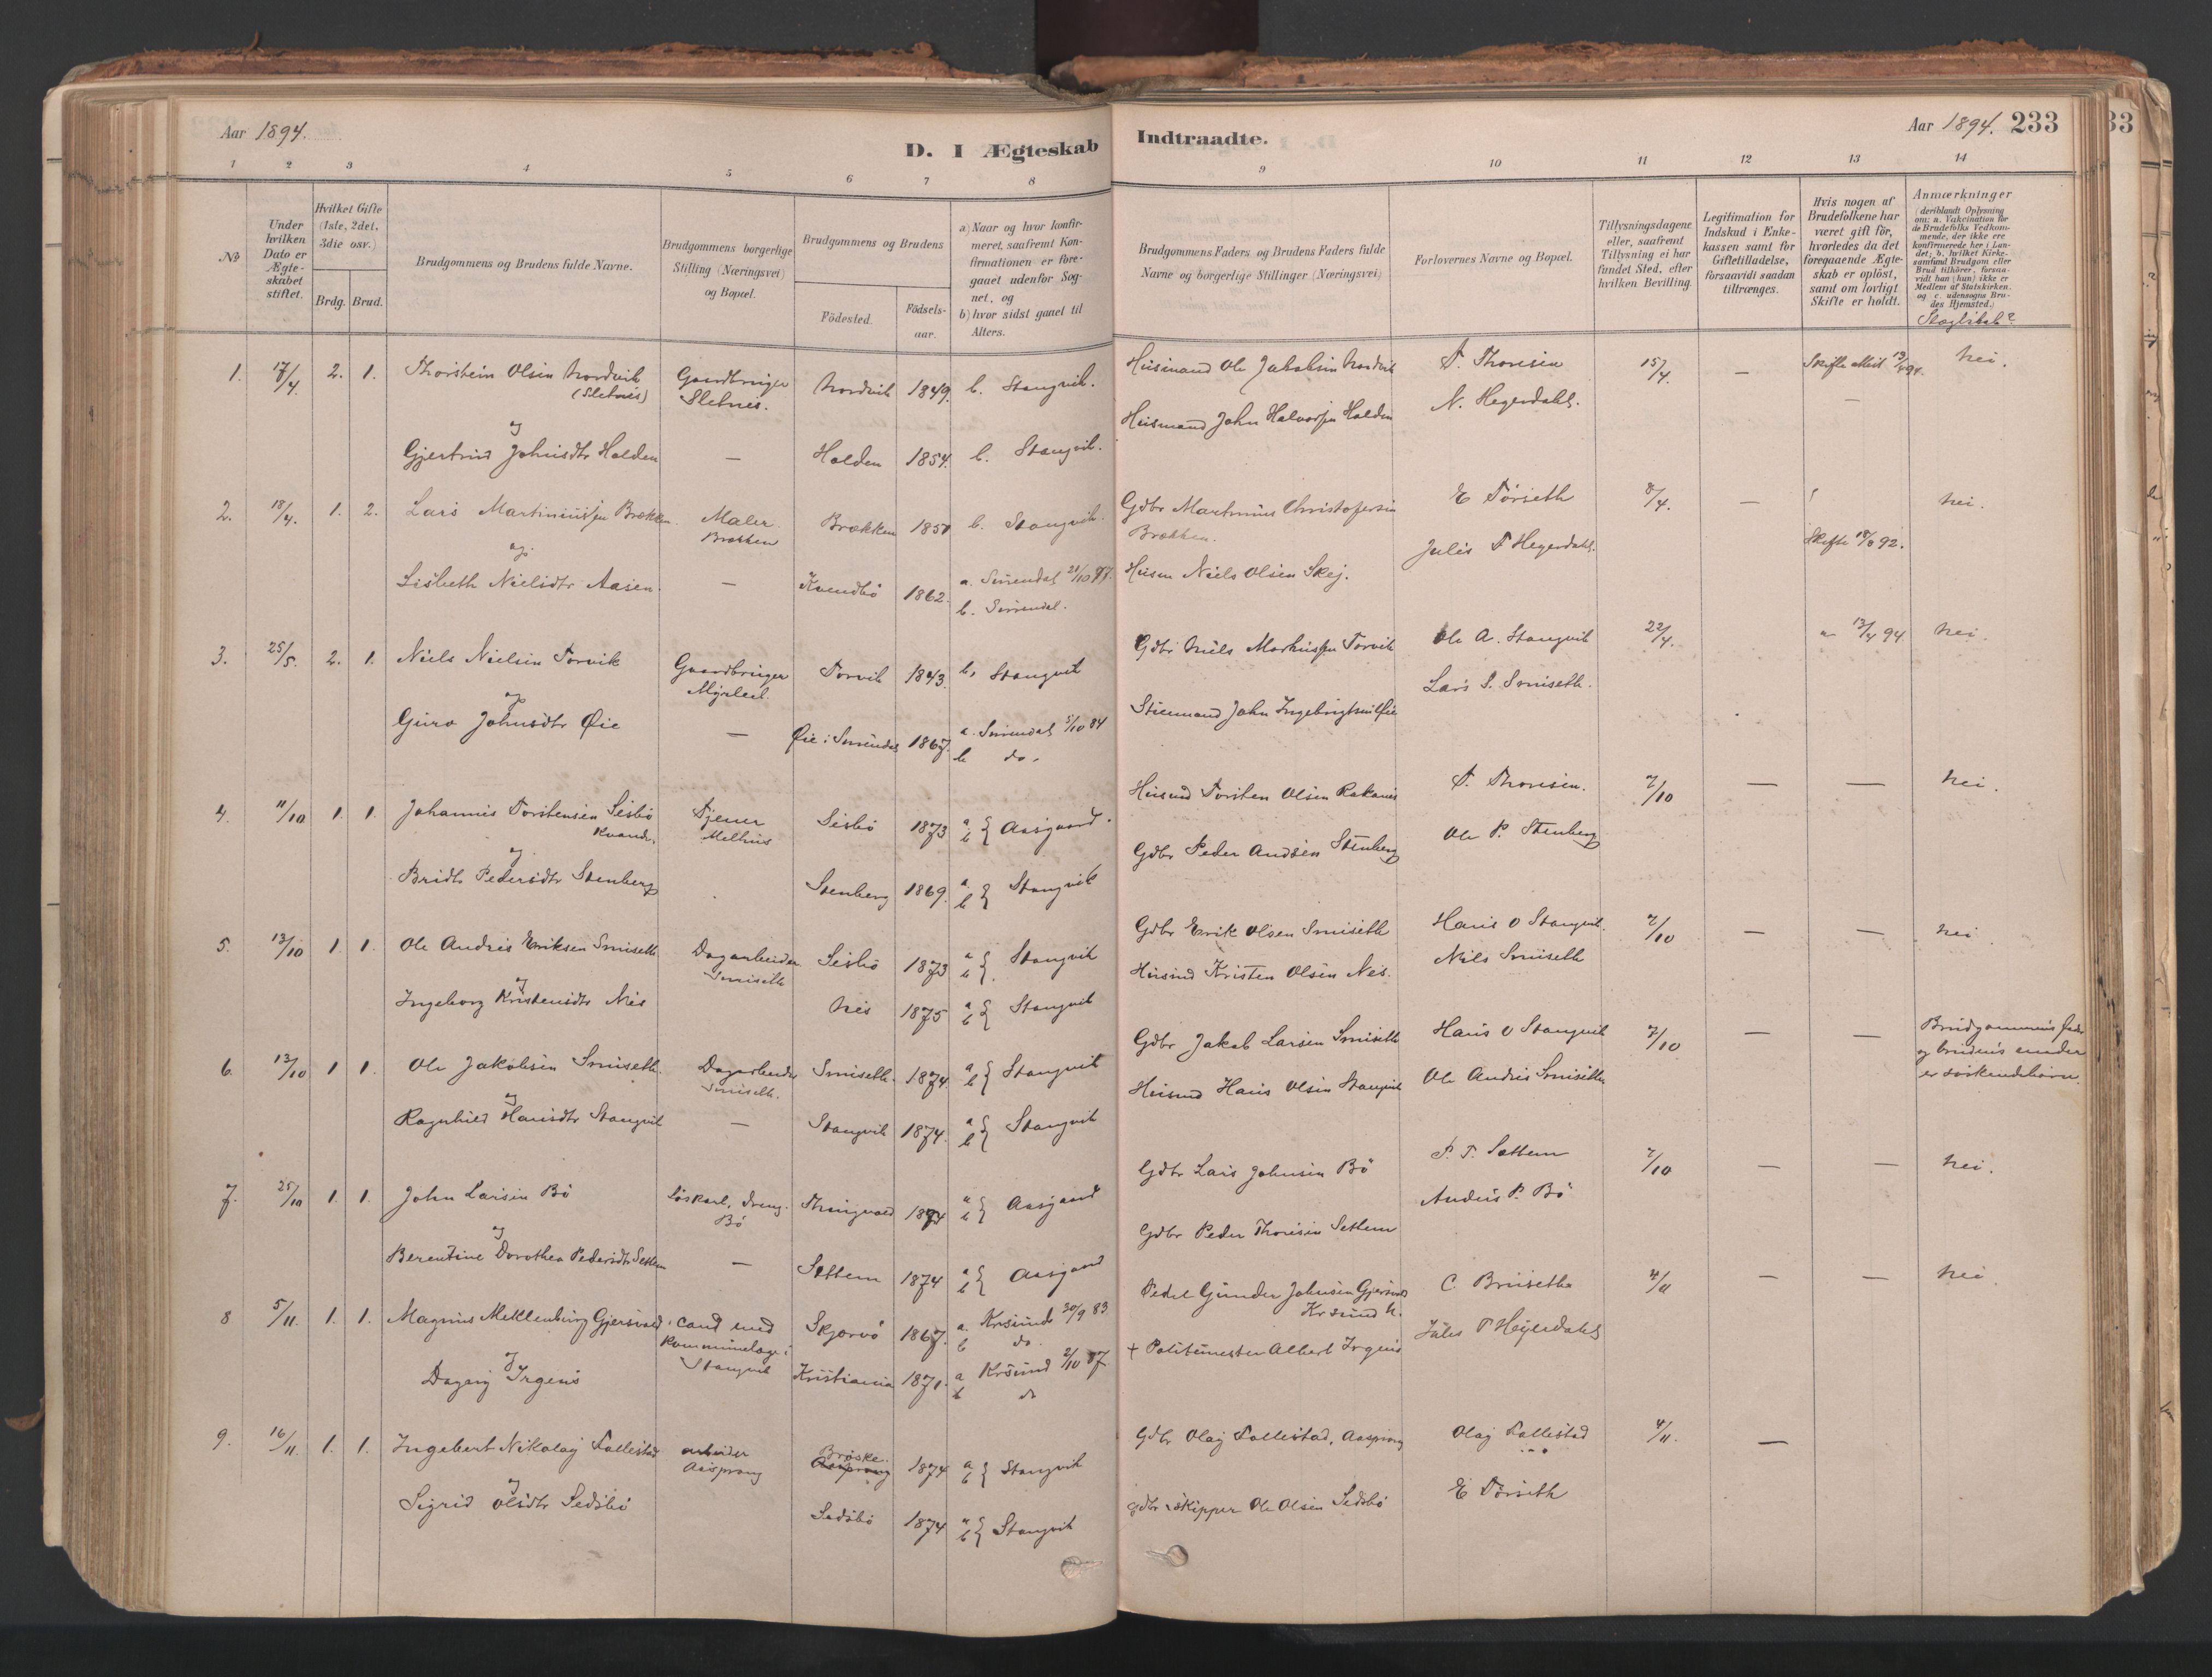 Aar 1894.
D. I Ægteskab Indtraadte.
Aar 1894. 233
33
1 2 3 4 5 6 7 8 9 10 11 12 13 14
No
Under hvilken Dato er Ægteskabet stiftet.
Hvilket Gifte (1ste, 2det, 3die osv.)
Brdg. Brud.
Brudgommens og Brudens fulde Navne.
Brudgommens borgerlige Stilling (Næringsvei) og Bopæl.
Brudgommens og Brudens
Födested. Födsels-aar.
a) Naar og hvor konfirmeret, saafremt Konfirmationen er foregaaet udenfor Sognet, og
b) hvor sidst gaaet til Alters.
Brudgommens Faders og Brudens Faders fulde Navne og borgerlige Stillinger (Næringsvei)
Forlovernes Navne og Bopæl.
Tillysningsdagene eller, saafremt Tillysning ei har fundet Sted, efter hvilken Bevilling.
Legitimation for Indskud i Enkekassen samt for Giftetilladelse, forsaavidt saadan tiltrænges.
Hvis nogen af Brudefolkene har været gift för, hvorledes da det foregaaende Ægteskab er oplöst, samt om lovligt Skifte er holdt.
Anmærkninger
(deriblandt Oplysning om: a. Vakcination för de Brudefolks Vedkommende, der ikke ere konfirmerede her i Landet; b. hvilket Kirkesamfund Brudgom eller Brud tilhörer, forsaavidt han (hun) ikke er Medlem af Statskirken. og c. udensogns Brudes Hjemsted.)
Slægtskab?
1. 17/4. 2. 1. Thorstein Olsen Nordvik (Sletnes) Gaardbruger Sletnes. Nordvik 1849. b. Stangvik. Husmand Ole Jakobsen Nordvik T. Thoresen 15/4. — Skifte attest 13/4 94. nei.
og
Gjertrud Johnsdtr Holden — Holden 1854. b. Stangvik. Husmand John Halvorsen Holden N. Hegerdahl. —
2. 18/4. 1. 2. Lars Martinussen Brækken Maler. Brækken Brækken 1850 b. Stangvik. Gdbr Martinus Christofersen Brækken. E Törseth 8/4. — nei.
og
Lisbeth Nielsdtr Aasen. — Kvendbö 1862. a. Surendal 21/10 77. b. Surendal. Husm Niels Olsen Skej. Julis T Hegerdahl. Skifte 92.
3. 25/5. 2. 1. Niels Nielsen Torvik Gaardbruger Torvik 1843. b. Stangvik Gdbr Niels Torvik Ole A. Stangvik 22/4. 13/4 94 nei.
og
Guro Johnsdtr Øie — Øie i Surendal 1867. a. Surendal 5/10 84 b do. John Ingebrigtsen Øie Lars S. Smiseth.
4. 11/10 1. 1. Johannes Torstensen Sesbö Kvande. Tjener Melhus Sesbö 1873 a b } Aasgaard. Husmd Torsten Olsen Rakanes T. Thoresen. 7/10 — — nei.
og
Bridt Pedersdtr Stenberg Stenberg 1869. a b } Stangvik Gdbr Peder Andsen Stenberg Ole P. Stenberg
5. 13/10 1. 1. Ole Andres Eriksen Smiseth Dagarbeider Smiseth Sesbö 1873 a b } Stangvik Gdbr Erik Olsen Smiseth Hans O Stangvik. 7/10 — — nei
og
Ingeborg Kristensdtr Nes Nes 1875 a b } Stangvik Husmd Kristen Olsen Nes. Nils Smiseth
6. 13/10 1 1. Ole Jakobsen Smiseth. Dagarbeider Smiseth. Smiseth. 1874. a b } Stangvik Gdbr Jakob Larsen Smiseth Hans O Stangvik 7/10 — — Brudgommens fader og brudens moder er söskendebörn.
og
Ragnhild Hansdtr Stangvik — Stangvik 1874. a b } Stangvik Husmd Hans Olsen Stangvik Ole Andres Smiseth
7. 25/10 1. 1. John Larsen Bö dreng. Bö Thingvold 1874 a b } Aasgaard Gdbr Lars Johnsen Bö P. T. Settem 7/10 — — nei.
og
Berentine Dorothea Pedersdtr Settem — Settem 1874 a b } Aasgaard Gdbr Peder Thoresen Settem Anders P. Bö
8 5/11. 1. 1. Magnus Meklenburg Gjersvold cand med kommunelæge i Stangvik Skjervö 1867. a. Krsund 30/9 83. b do. Pedel Gunder Johnsen Gjersvold Krsund N. C. Brüseth 4/11 — — nei.
og
Dagny Irgens Kristiania 1871. a Krsund 2/10 87 b do + Politimester Albert Irgens Jules T Heyerdahl
9. 16/11. 1. 1. Ingebert Nikolay Tallestad arbeider Aasprong Bröske. Aasprong 1874 a b } Stangvik Gdbr Olaj Tallestad, Aasprong Olaj Tallestad 4/11. —
og
Sigrid Olsdtr Sedsbö Sedsbö 1874 a b } Stangvik Gdbr & skipper Ole Olsen Sedsbö E Törseth